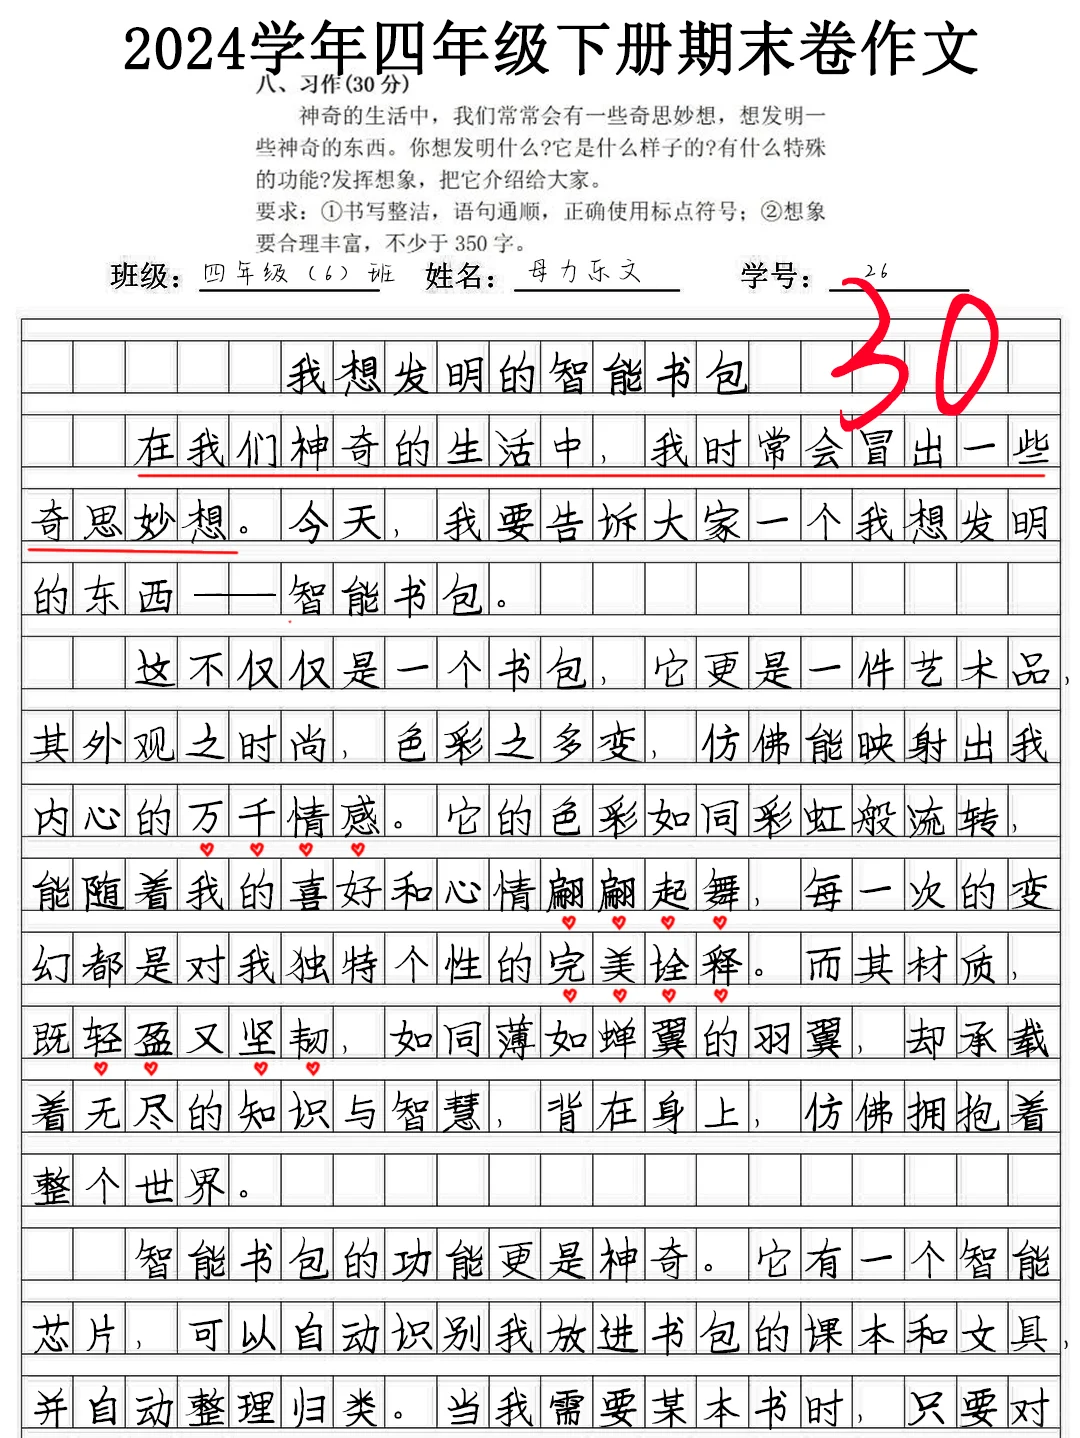 2024学年四年级下册期末卷作文
八、习作(30分)
神奇的生活中，我们常常会有一些奇思妙想，想发明一
些神奇的东西。你想发明什么?它是什么样子的?有什么特殊
的功能?发挥想象，把它介绍给大家。
要求：①书写整洁，语句通顺，正确使用标点符号；②想象
要合理丰富，不少于350字。
班级：四年级（6）班 姓名：母力乐文 学号：26
30
我想发明的智能书包
在我们神奇的生活中，我时常会冒出一些
奇思妙想。今天，我要告诉大家一个我想发明
的东西——智能书包。
这不仅仅是一个书包，它更是一件艺术品，
其外观之时尚，色彩之多变，仿佛能映射出我
内心的万千情感。它的色彩如同彩虹般流转，
能随着我的喜好和心情翩翩起舞，每一次的变
幻都是对我独特个性的完美诠释。而其材质，
既轻盈又坚韧，如同薄如蝉翼的羽翼，却承载
着无尽的知识与智慧，背在身上，仿佛拥抱着
整个世界。
智能书包的功能更是神奇。它有一个智能
芯片，可以自动识别我放进书包的课本和文具，
并自动整理归类。当我需要某本书时，只要对